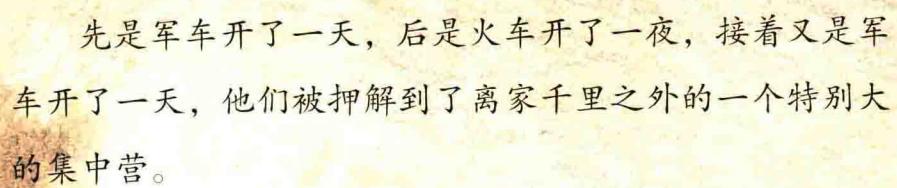 先是军车开了一天，后是火车开了一夜，接着又是军
车开了一天，他们被押解到了离家千里之外的一个特别大
的集中营。